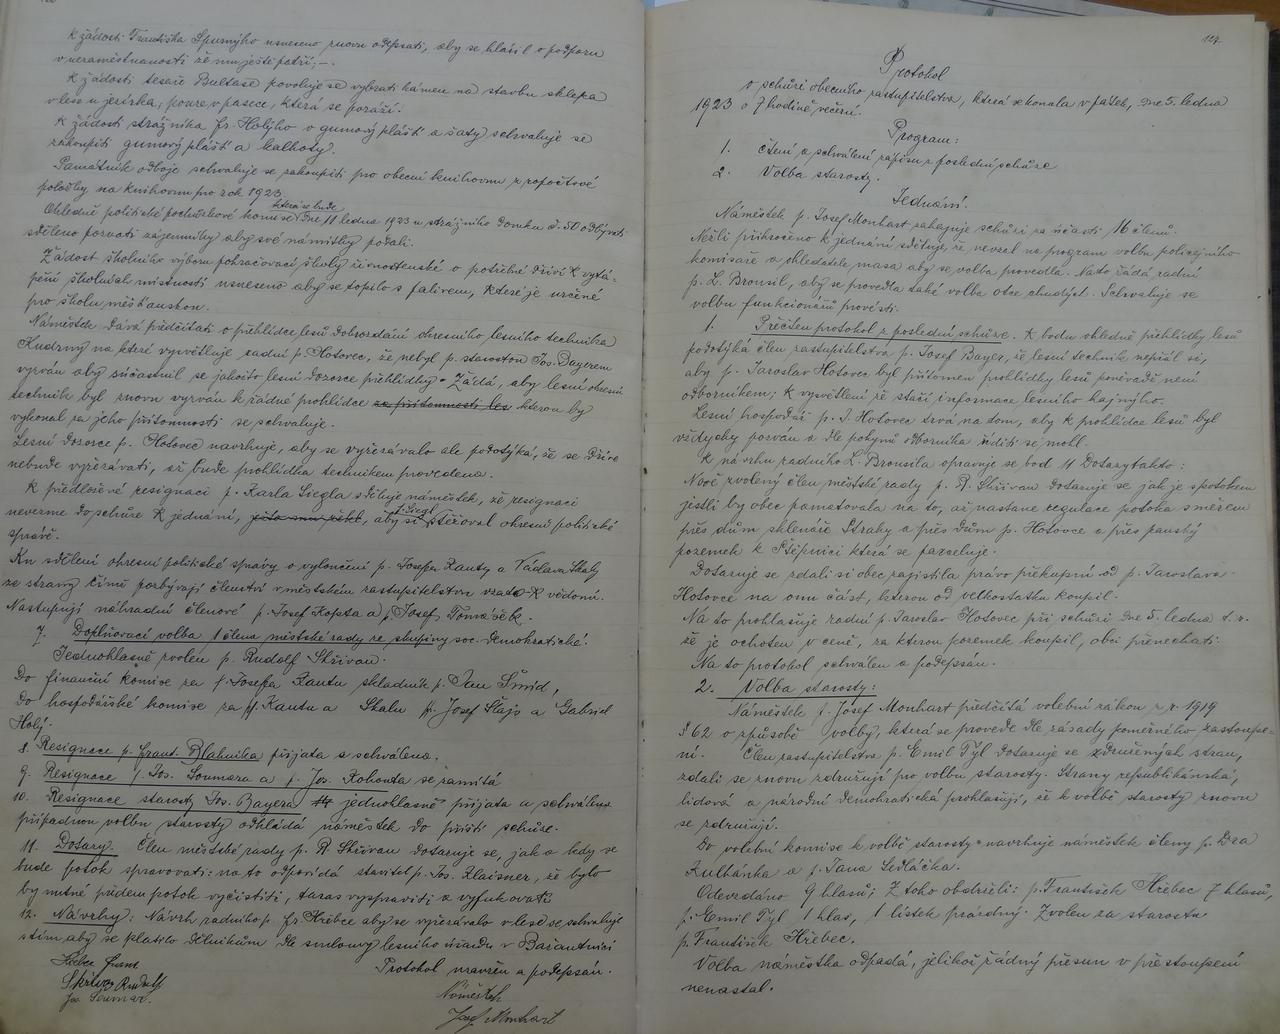 K žádosti Františka Spurnýho usneseno znovu odepsati, aby se hlásil o podporu
v nezaměstnanosti že mu ještě patří; —.
K žádosti tesaře Bultase povoluje se vybrati kámen na stavbu sklepa
v lese u jezírka; pouze v pasece, která se poráží.
K žádosti strážníka Fr. Holýho o gumový plášť a šaty schvaluje se
zakoupiti gumový plášť a kalhoty.
Památník odboje schvaluje se zakoupiti pro obecní knihovnu z rozpočtové
položky na knihovnu pro rok 1923.
která se bude
Ohledně politické pochůzkové komise dne 11 ledna 1923 u strážního domku č. 50 odbývati
sděleno pozvati zájemníky aby své námitky podali.
Žádost školního výboru pokračovací školy živnostenské o potřebné dříví k vytá-
pění školních místností usneseno aby se topilo s palivem, které je určené
pro školu měšťanskou.
Náměstek dává předčítati o přehlídce lesů dobrozdání okresního lesního technika
Kudrny na které vysvětluje radní p. Hotovec, že nebyl p. starostou Jos. Bayerem
vyzván aby súčastnil se jakožto lesní dozorce přehlídky. Žádá, aby lesní okresní
technik byl znovu vyzván k řádné prohlídce za přítomnosti les kterou by
vykonal za jeho přítomnosti se schvaluje.
Lesní dozorce p. Hotovec navrhuje, aby se vyřezávalo ale podotýká, že se dříve
nebude vyřezávati, až bude prohlídka technikem provedena.
K předešlé resignaci p. Karla Siegla sděluje náměstek, že resignaci
nevezme do schůze k jednání, aby si p. Siegl stěžoval okresní politické
správě.
Ku sdělení okresní politické správy o vyloučení p. Josefa Kauty a Václava Skaly
ze strany čímž pozbývají členství v městském zastupitelstvu vzato k vědomí.
Nastupují náhradní členové p. Josef Kopsta a p. Josef Tomášek.
7. Doplňovací volba 1 člena městské rady ze skupiny soc. demokratické.
Jednohlasně zvolen p. Rudolf Skřivan.
Do finanční komise za p. Josefa Kautu skladník p. Jan Šmíd,
Do hospodářské komise za p. Kautu a Skalu pp. Josef Šlajs a Gabriel
Holý.
8. Resignace p. Frant. Blahníka přijata a schválena.
9. Resignace p. Jos. Soumara a p. Jos. Kohouta se zamítá
10. Resignace starosty Jos. Bayera jednohlasně přijata a schválena
případnou volbu starosty odkládá náměstek do příští schůze.
11. Dotazy. Člen městské rady p. R. Skřivan dotazuje se, jak a kdy se
bude potok spravovati: na to odpovídá stavitel p. Jos. Klaisner, že bylo
by nutné předem potok vyčistiti, taras vyspraviti a vyfukovati
12. Návrhy: Návrh radního p. Fr. Hřebce aby se vyřezávalo v lese se schvaluje
s tím, aby se platilo dělníkům dle smlouvy lesního úřadu v Bažantnici
Protokol uzavřen a podepsán.
Hřebec Frant
Skřivan Rudolf
Jos. Soumar.
Náměstek
Josef Monhart
127.
Protokol
o schůzi obecního zastupitelstva, která se konala v pátek, dne 5. ledna
1923 o 7 hodině večerní.
Program:
1. čtení a schválení zápisu z poslední schůze
2. Volba starosty.
Jednání.
Náměstek p. Josef Monhart zahajuje schůzi za účasti 16 členů.
Nežli přikročeno k jednání sděluje, že nevzal na program volbu policejního
komisaře a ohledatele masa aby se volba provedla. Na to žádá radní
p. L. Brousil, aby se provedla také volba otce chudých. Schvaluje se
volbu funkcionářů provésti.
1. Přečten protokol z poslední schůze. K bodu ohledně přehlídky lesů
podotýká člen zastupitelstva p. Josef Bayer, že lesní technik nepřál si,
aby p. Jaroslav Hotovec byl přítomen prohlídky lesů poněvadž není
odborníkem; k vysvětlení že stačí informace lesního hajného.
Lesní hospodář p. J. Hotovec trvá na tom, aby k prohlídce lesů byl
vždycky pozván a dle pokynů odborníka říditi se mohl.
K návrhu radního L. Brousila opravuje se bod 11 Dotazy takto:
Nově zvolený člen městské rady p. R. Skřivan dotazuje se jak je s potokem
jestli by obec pamatovala na to, až nastane regulace potoka směrem
přes dům sklenáře Straky a přes dům p. Hotovce a přes panský
pozemek k Štěpnici která se parceluje.
Dotazuje se zdali si obec zajistila právo překupní od p. Jaroslava
Hotovce na onu část, kterou od velkostatku koupil.
Na to prohlašuje radní p. Jaroslav Hotovec při schůzi dne 5. ledna t. r.
že je ochoten v ceně, za kterou pozemek koupil, obci přenechati.
Na to protokol schválen a podepsán.
2. Volba starosty:
Náměstek p. Josef Monhart předčítá volební zákon z r. 1919
§ 62 o způsobě volby, která se provede dle zásady poměrného zastoupe-
ní. Člen zastupitelstva p. Emil Týl dotazuje se združených stran,
zdali se znovu združují pro volbu starosty. Strany republikánská,
lidová a národní demokratická prohlašují, že k volbě starosty znovu
se združují.
Do volební komise k volbě starosty navrhuje náměstek členy p. Dra
Kulhánka a p. Jana Sedláčka.
Odevzdáno 9 hlasů; Z toho obdrželi: p. František Hřebec 7 hlasů,
p. Emil Týl 1 hlas, 1 lístek prázdný. Zvolen za starostu
p. František Hřebec.
Volba náměstka odpadá, jelikož žádný přesun v přestoupení
nenastal.